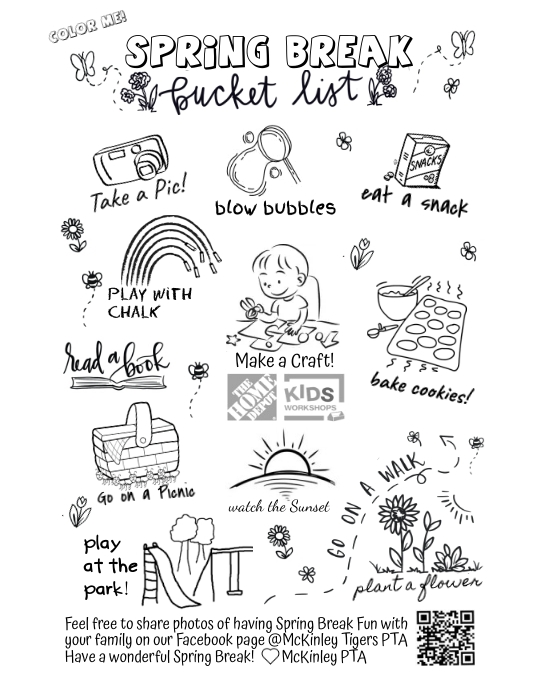 COLOR ME!
SPRING BREAK
bucket list
Take a Pic!
blow bubbles
SNACKS
eat a snack
PLAY WITH
CHALK
Make a Craft!
read a book
bake cookies!
THE
HOME
DEPOT
KIDS
WORKSHOPS
Go on a Picnic
watch the Sunset
GO ON A WALK
play
at the
park!
plant a flower
Feel free to share photos of having Spring Break Fun with
your family on our Facebook page @McKinley Tigers PTA
Have a wonderful Spring Break! ♡ McKinley PTA